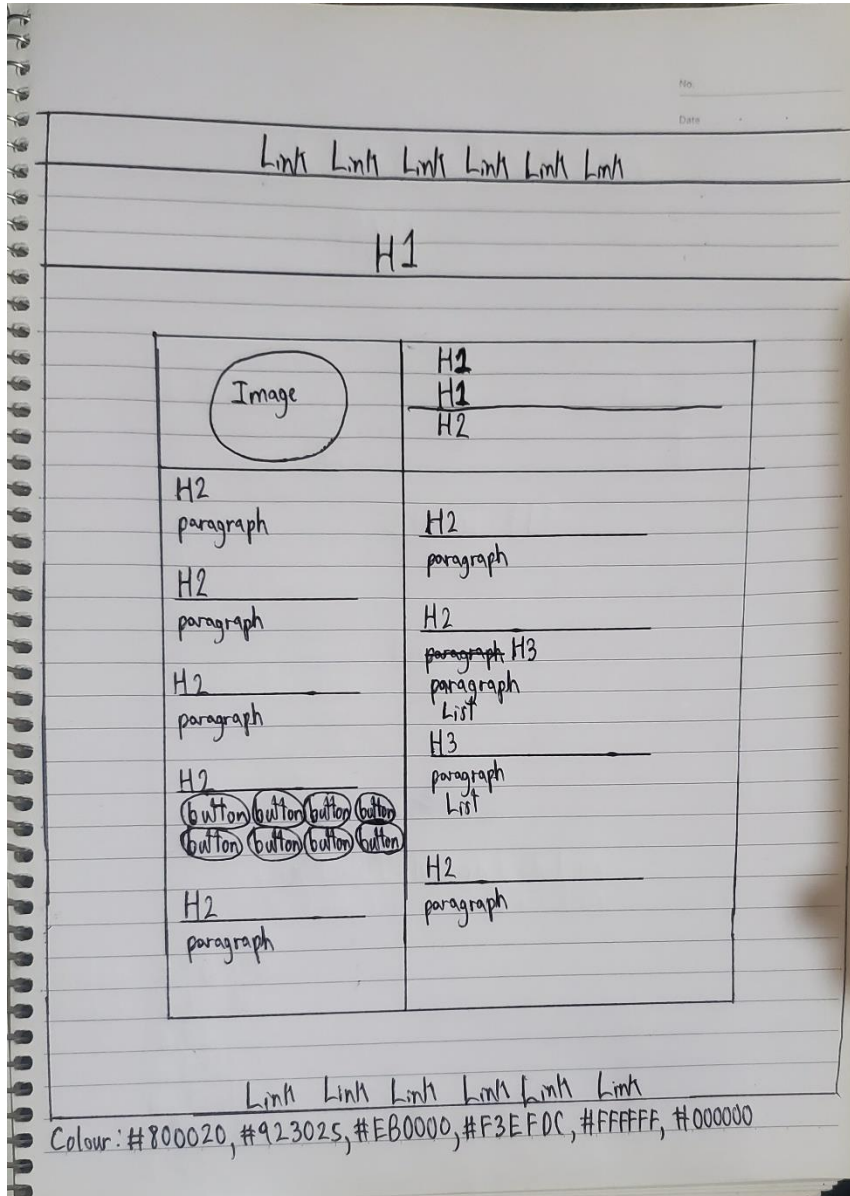 No.
Date
Link Link Link Link Link Link
H1
Image
H1
H1
H2
H2
paragraph
H2
paragraph
H2
paragraph
H2
button button button button
button button button button
H2
paragraph
H2
paragraph
H2
paragraph H3
paragraph
List
H3
paragraph
List
H2
paragraph
Link Link Link Link Link Link
Colour: #800020, #923025, #EB0000, #F3EFDC, #FFFFFF, #000000